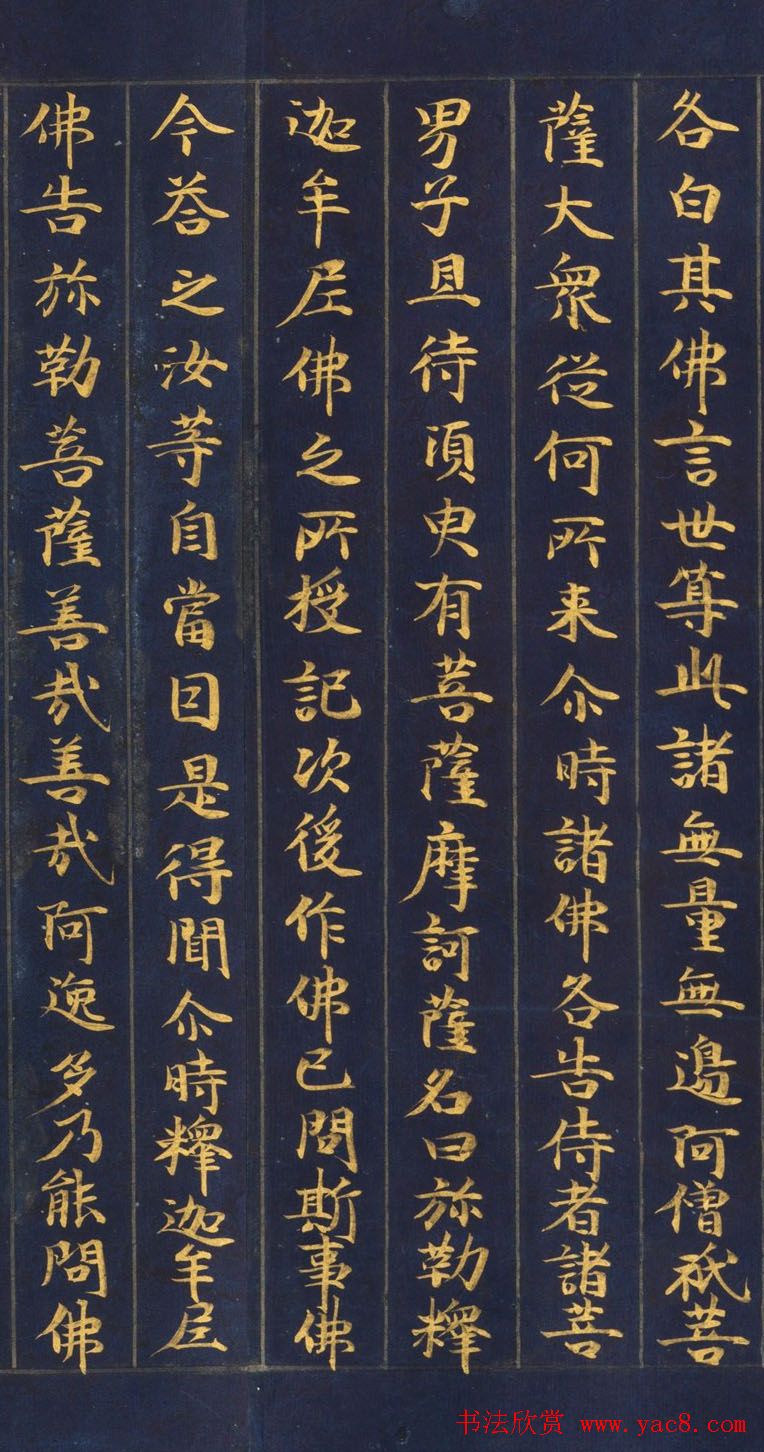 各白其佛言世尊此諸無量無邊阿僧祇菩
薩大衆從何所来尒時諸佛各告侍者諸菩
男子且待須臾有菩薩摩訶薩名曰弥勒釋
迦牟尼佛之所授記次後作佛已問斯事佛
今荅之汝等自當因是得聞尒時釋迦牟尼
佛告弥勒菩薩善哉善哉阿逸多乃能問佛
书法欣赏 www.yac8.com